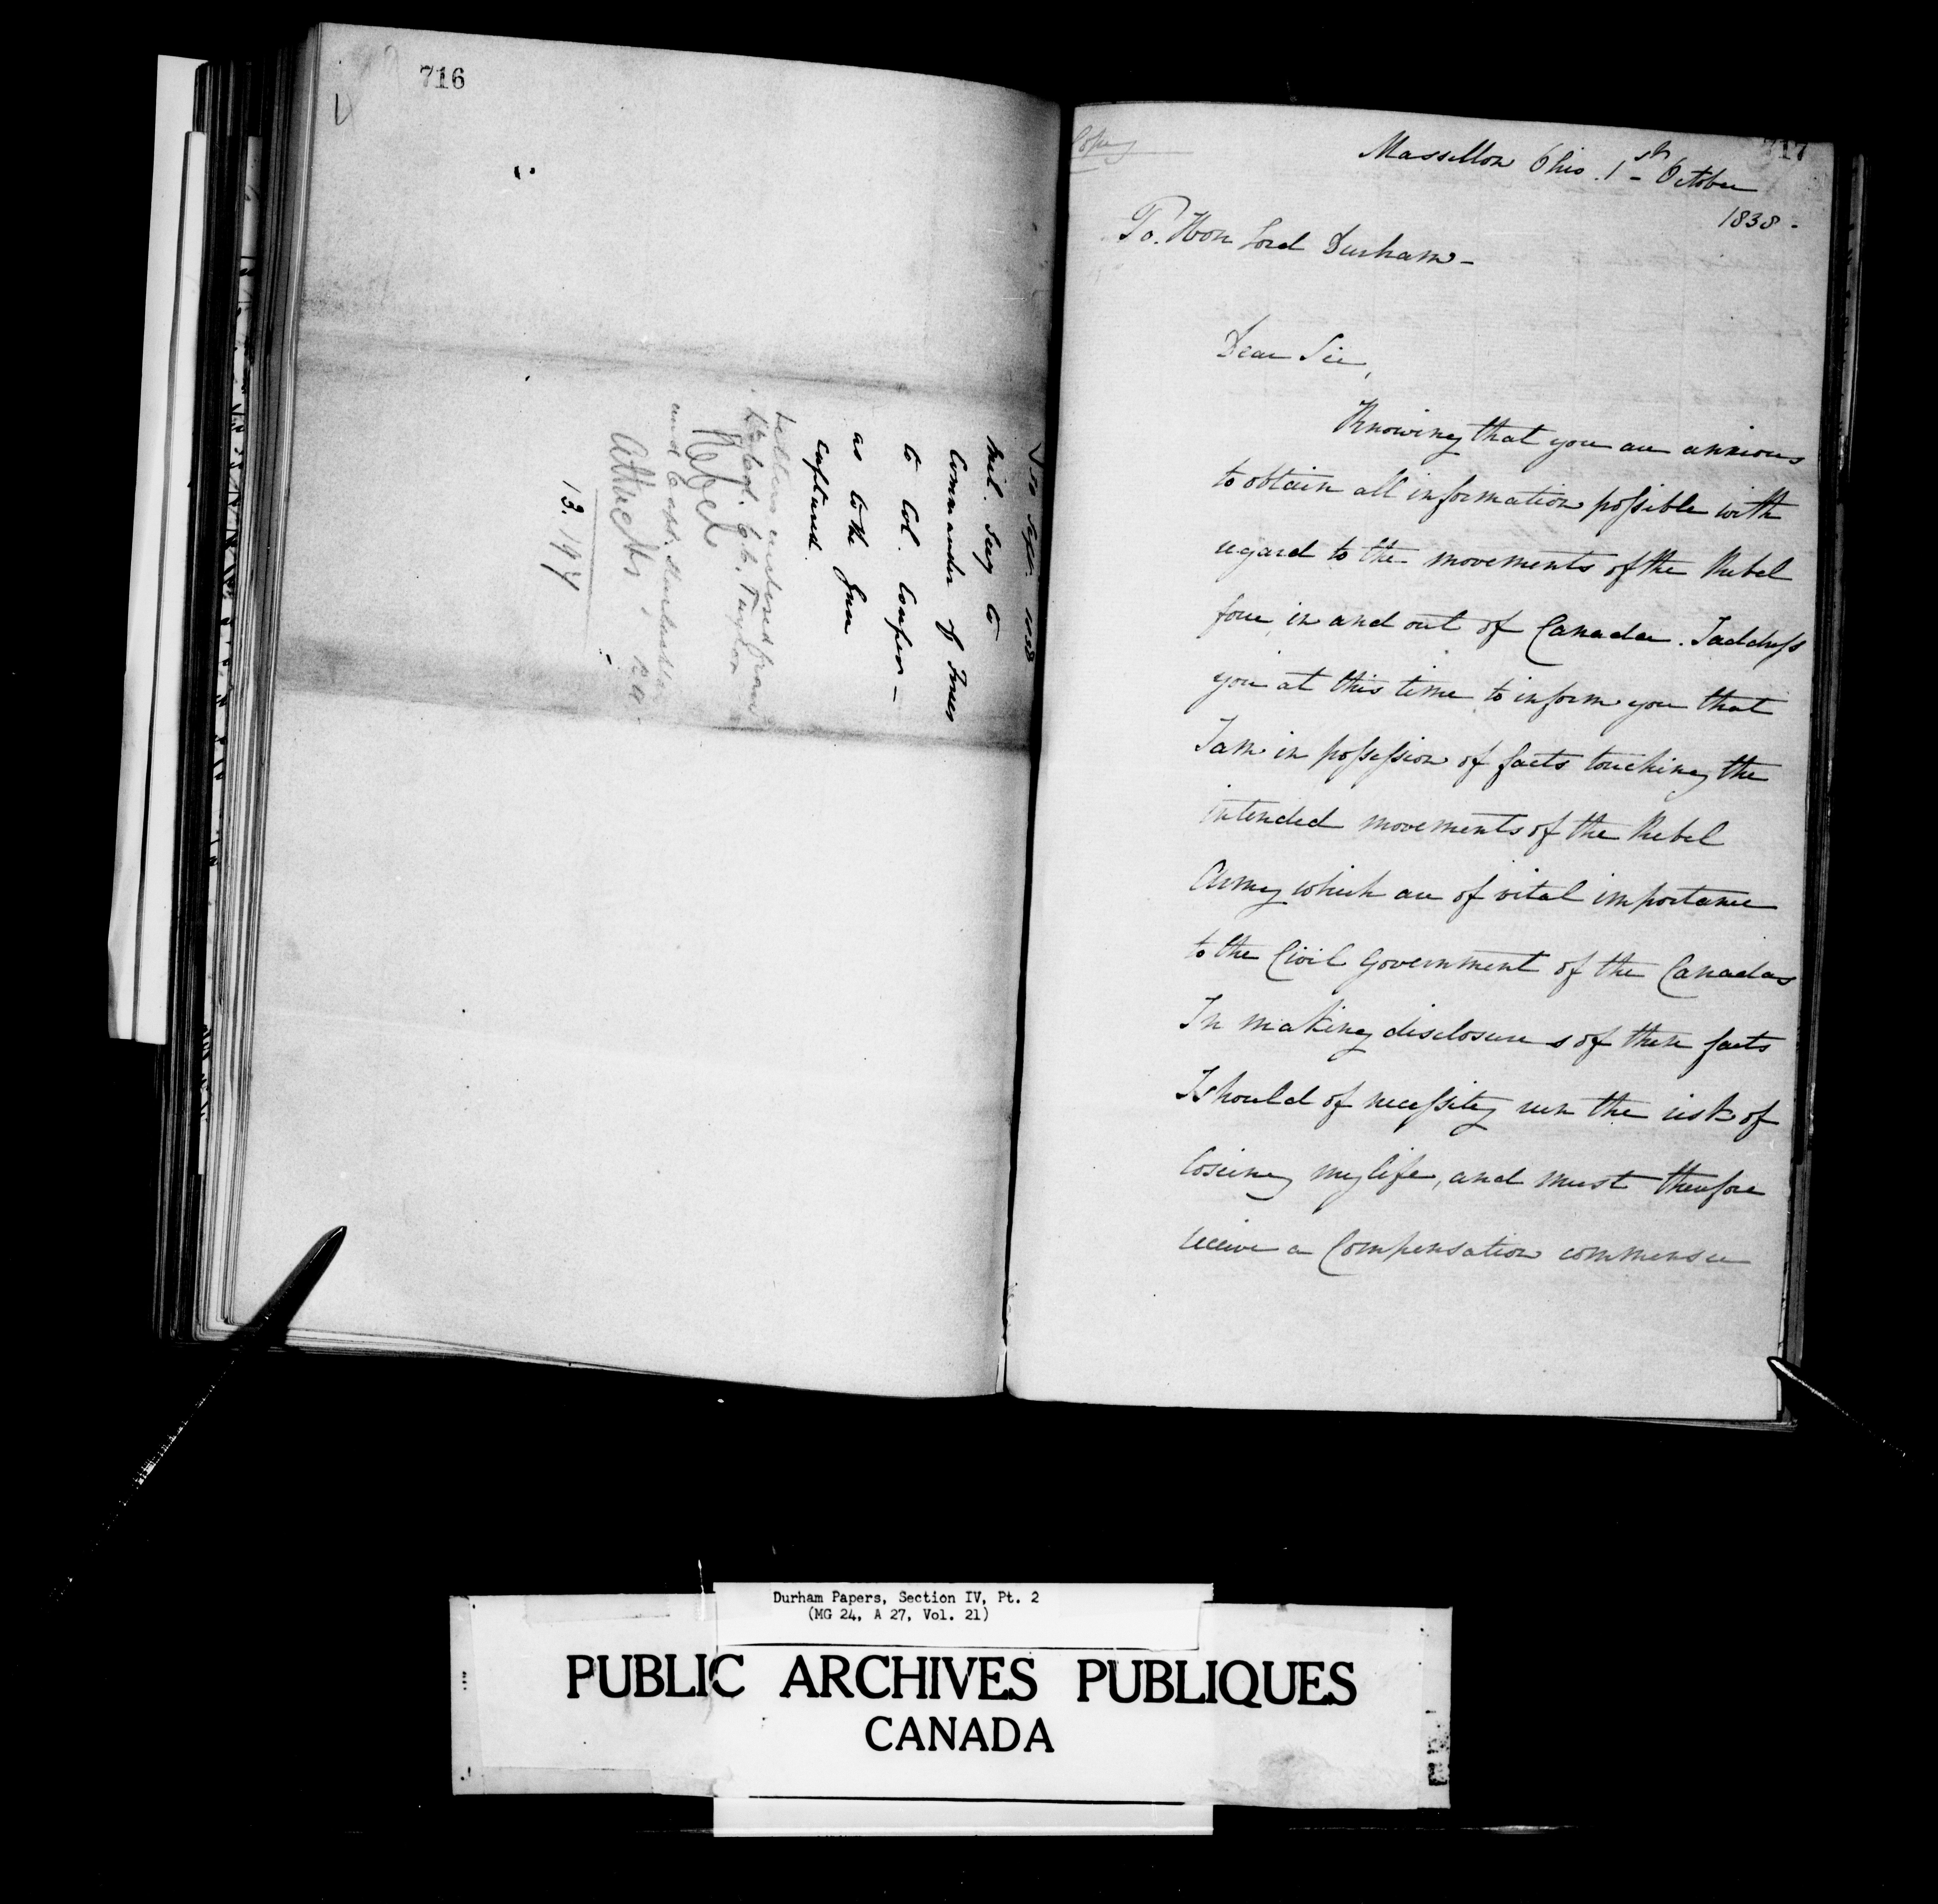 716
Mil. Secy to
Commander of Forces
to Col. Couper -
as to the Guns
captured.
Letters enclosed from
Lt. Col. C. C. Taylor
Rebel
and Capt.
Attacks,
13. 197
717
Copy
Massillon Ohio. 1st October
1838.
To. Hon Lord Durham -
Dear Sir,
Knowing that you are anxious
to obtain all information possible with
regard to the movements of the Rebel
force, in and out of Canada. I address
you at this time to inform you that
I am in possession of facts touching the
intended movements of the Rebel
Army which are of vital importance
to the Civil Government of the Canadas
In making disclosures of these facts
I should of necessity run the risk of
loseing my life, and must therefore
receive a Compensation commensu
Durham Papers, Section IV, Pt. 2
(MG 24, A 27, Vol. 21)
PUBLIC ARCHIVES PUBLIQUES
CANADA